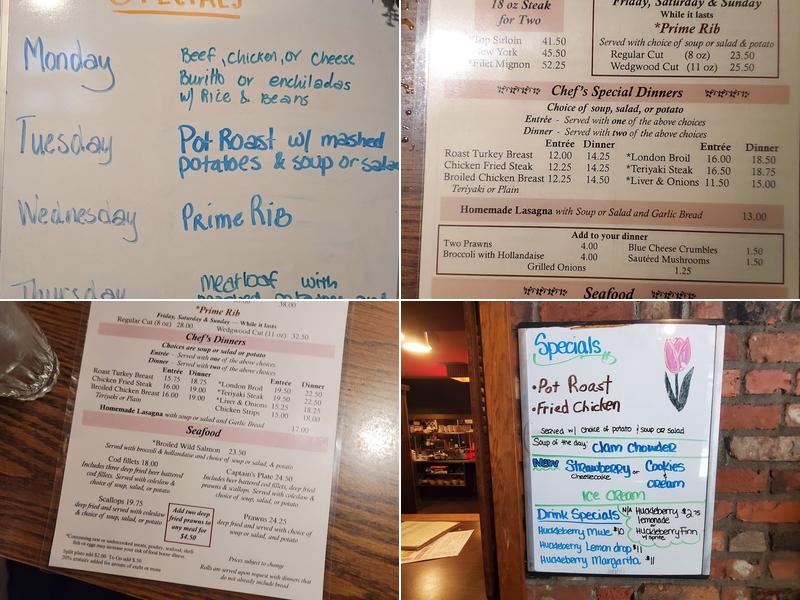 SPECIALS
Monday
Beef, Chicken, or Cheese
Burrito or enchiladas
w/ Rice & Beans
Tuesday
Pot Roast w/ mashed
potatoes & soup or salad
Wednesday
Prime Rib
Thursday
Meatloaf with
mashed potatoes and
18 oz Steak
for Two
*Top Sirloin 41.50
New York 45.50
*Filet Mignon 52.25
Friday, Saturday & Sunday
While it lasts
*Prime Rib
Served with choice of soup or salad & potato
Regular Cut (8 oz) 23.50
Wedgwood Cut (11 oz) 25.50
Chef's Special Dinners
Choice of soup, salad, or potato
Entrée - Served with one of the above choices
Dinner - Served with two of the above choices
Entrée Dinner
Roast Turkey Breast 12.00 14.25
Chicken Fried Steak 12.25 14.25
Broiled Chicken Breast 12.25 14.50
Teriyaki or Plain
Entrée Dinner
*London Broil 16.00 18.50
*Teriyaki Steak 16.50 18.75
*Liver & Onions 11.50 15.00
Homemade Lasagna with Soup or Salad and Garlic Bread 13.00
Add to your dinner
Two Prawns 4.00
Broccoli with Hollandaise 4.00
Blue Cheese Crumbles 1.50
Sautéed Mushrooms 1.50
Grilled Onions 1.25
Seafood
38.00
*Prime Rib
Friday, Saturday & Sunday — While it lasts
Regular Cut (8 oz) 28.00 Wedgwood Cut (11 oz) 32.50
Chef's Dinners
Choices are soup or salad or potato
Entrée - Served with one of the above choices
Dinner - Served with two of the above choices
Entrée Dinner
Roast Turkey Breast 15.75 18.75
Chicken Fried Steak 16.00 19.00
Broiled Chicken Breast 16.00 19.00
Teriyaki or Plain
Entrée Dinner
*London Broil 19.50 22.50
*Teriyaki Steak 19.50 22.50
*Liver & Onions 15.25 18.25
Chicken Strips 15.00 18.00
Homemade Lasagna with soup or salad and Garlic Bread 17.00
Seafood
*Broiled Wild Salmon 23.50
Served with broccoli & hollandaise and choice of soup or salad, & potato
Cod fillets 18.00
Includes three deep fried beer battered
cod fillets. Served with coleslaw &
choice of soup, salad, or potato
Captain's Plate 24.50
Includes beer battered cod fillets, deep fried
prawns & scallops. Served with coleslaw &
choice of soup, salad, or potato
Scallops 19.75
deep fried and served with coleslaw
& choice of soup, salad, or potato
Add two deep
fried prawns to
any meal for
$4.50
Prawns 24.25
deep fried and served with choice of
soup, salad, or potato
*Consuming raw or undercooked meats, poultry, seafood, shell-
fish or eggs may increase your risk of food borne illness.
Split plate add $2.00 To Go add $.50
20% gratuity added for groups of eight or more
Prices subject to change
Rolls are served upon request with dinners that
do not already include bread
Specials
• Pot Roast
• Fried Chicken
Served w/ choice of potato & soup or salad
Soup of the day: Clam Chowder
NEW Strawberry or Cookies
Cheesecake & cream
ICE CREAM
Drink Specials
N/A Huckleberry $2.75
lemonade
or
Huckleberry Finn
w/ sprite
Huckleberry Mule $10
Huckleberry Lemon drop $11
Huckleberry Margarita $11